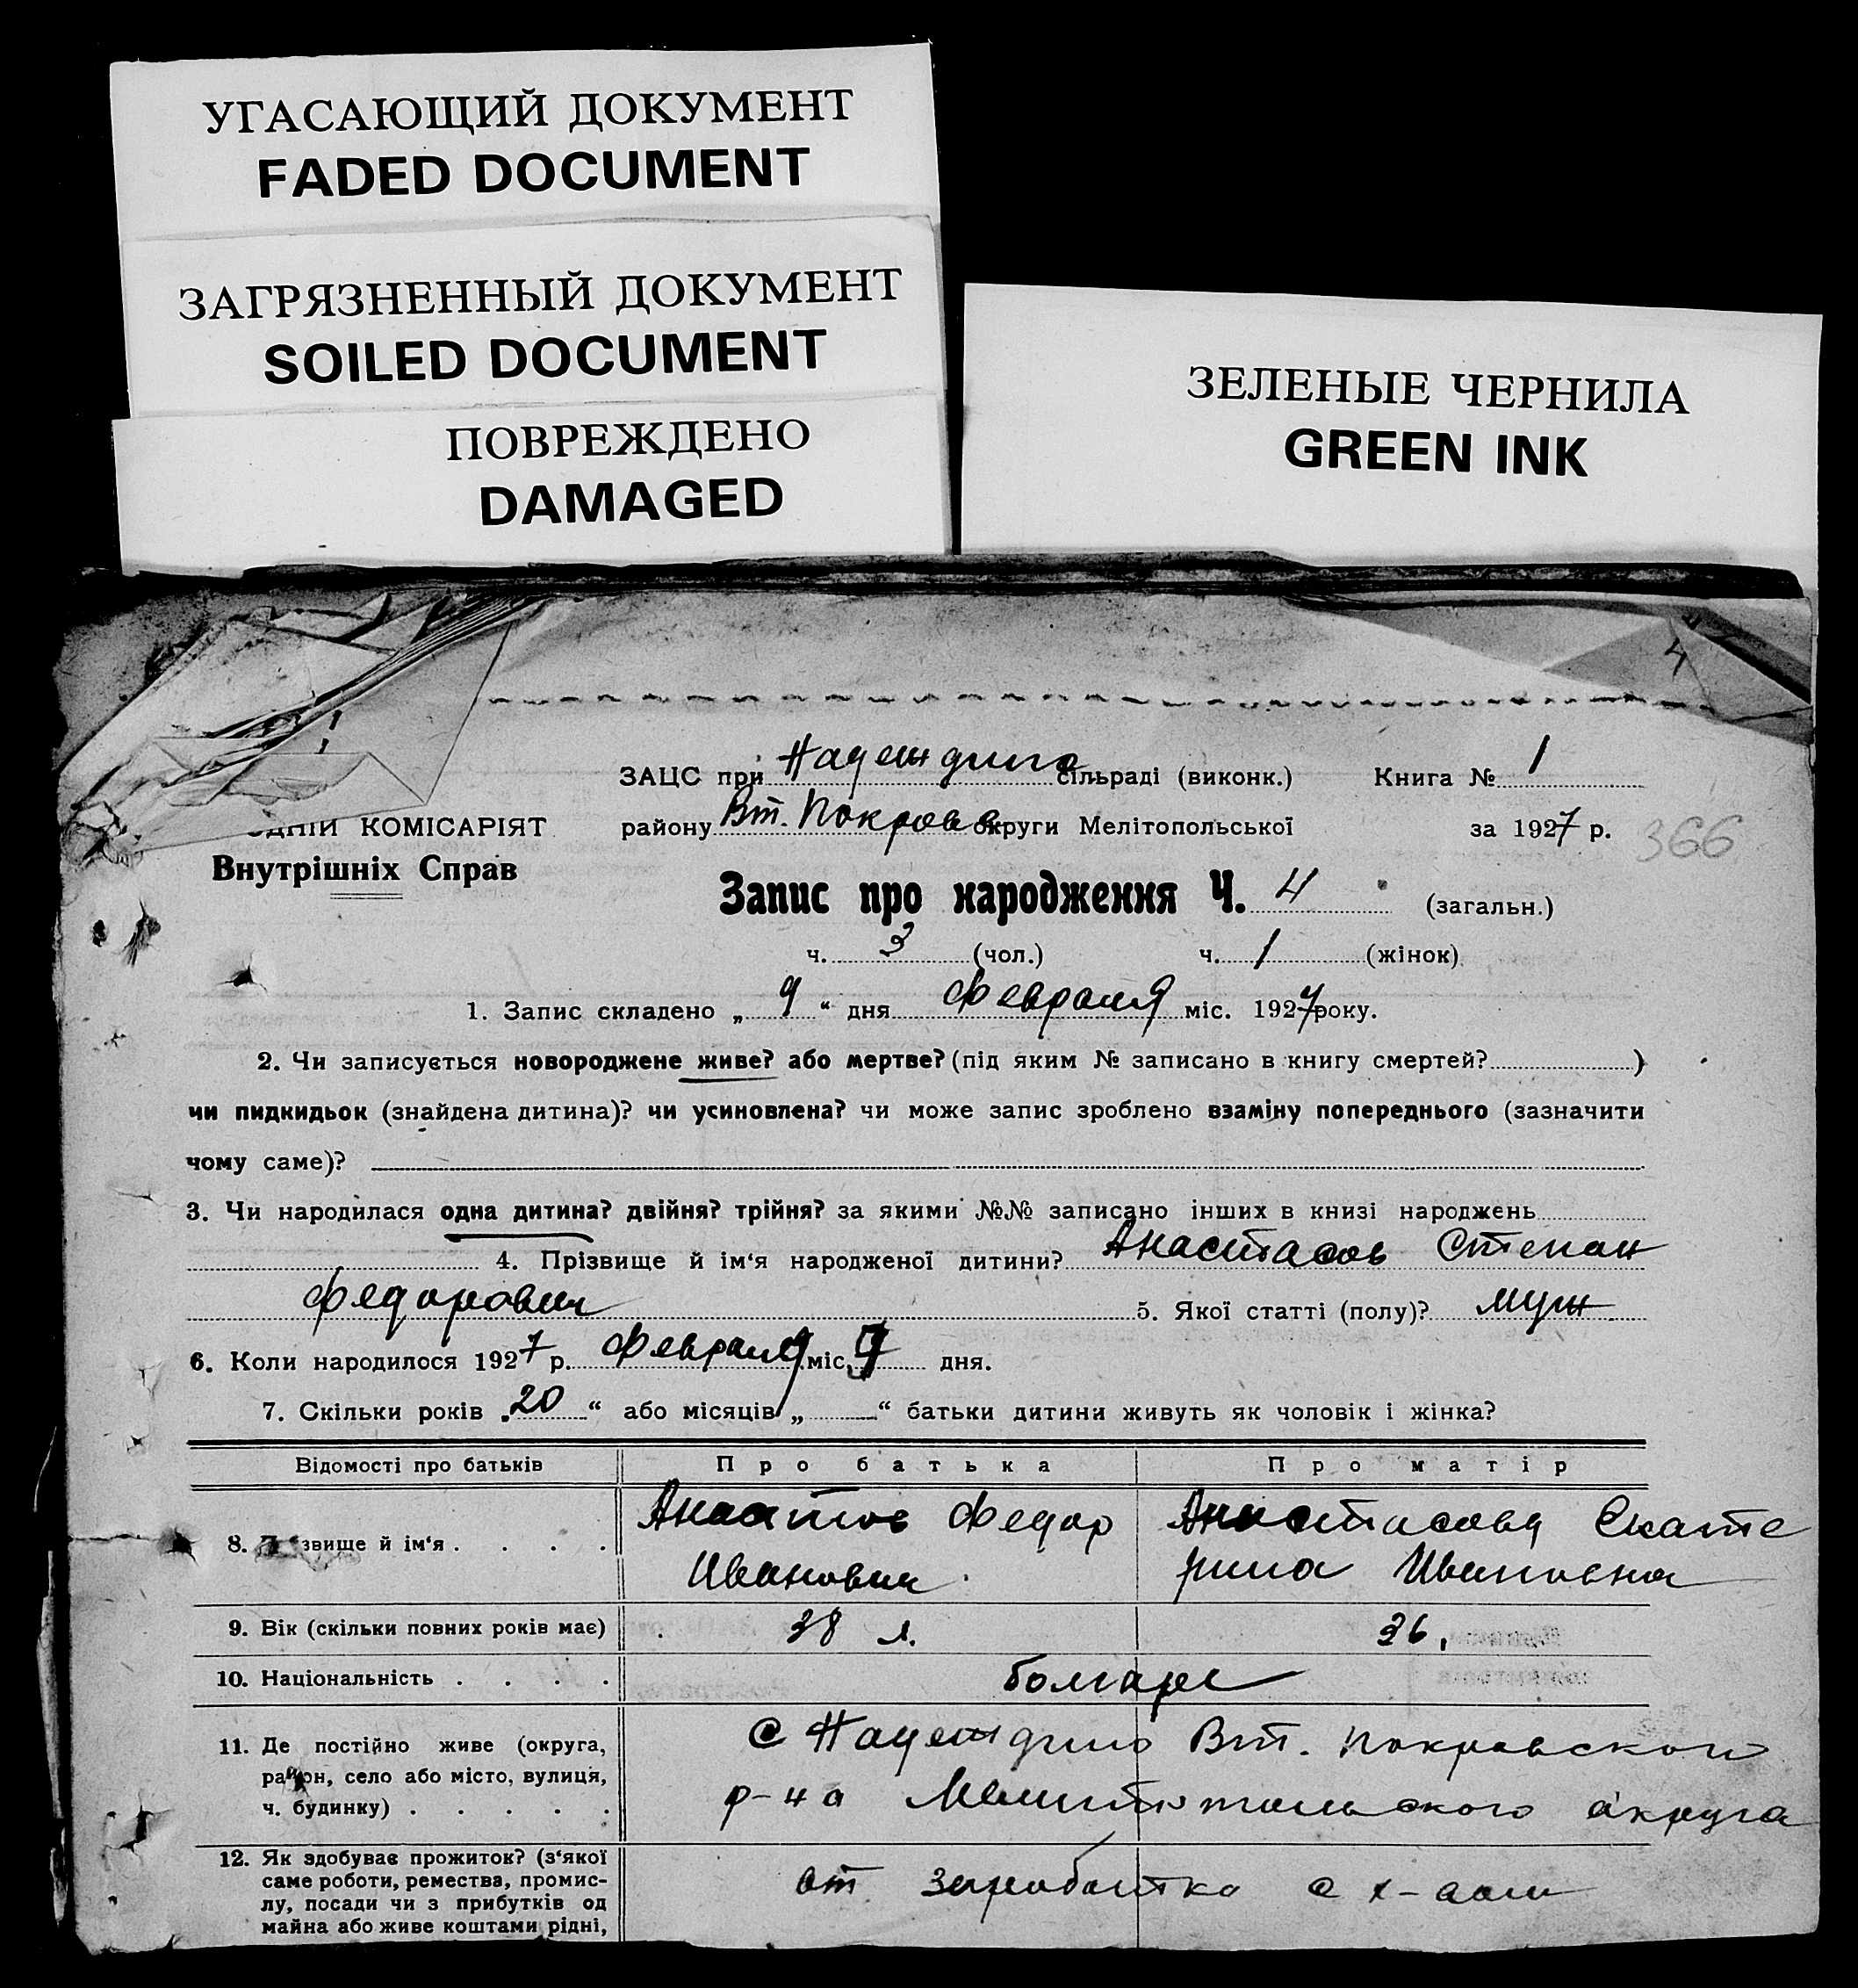 УГАСАЮЩИЙ ДОКУМЕНТ
FADED DOCUMENT
ЗАГРЯЗНЕННЫЙ ДОКУМЕНТ
SOILED DOCUMENT
ПОВРЕЖДЕНО
DAMAGED
ЗЕЛЕНЫЕ ЧЕРНИЛА
GREEN INK
4
ЗАЦС при Надеждино сільраді (виконк.) Книга № 1
КОМІСАРІЯТ району Вт. Покровс округи Мелітопольської за 1927 р. 366
Внутрішніх Справ
Запис про народження Ч. 4 (загальн.)
ч. 3 (чол.) ч. 1 (жінок)
1. Запис складено „ 9 “ дня Февраля міс. 1927 року.
2. Чи записується новороджене живе? або мертве? (під яким № записано в книгу смертей? )
чи пидкидьок (знайдена дитина)? чи усиновлена? чи може запис зроблено взаміну попереднього (зазначити
чому саме)?
3. Чи народилася одна дитина? двійня? трійня? за якими №№ записано інших в книзі народжень
4. Прізвище й ім‘я народженої дитини? Анастасов Степан
Федорович 5. Якої статті (полу)? муж
6. Коли народилося 1927 р. Февраля міс. дня.
7. Скільки років „ 20 “ або місяців „ “ батьки дитини живуть як чоловік і жінка?
Відомості про батьків Про батька Про матір
8. звище й ім‘я . . . . Федор Анастасова Екате
Иванович рина Ивановна
9. Вік (скільки повних років має) 38 л. 36,
10. Національність . . . . болгаре
11. Де постійно живе (округа, с Надеждино Вт. Покровской
район, село або місто, вулиця,
ч. будинку) . . . . . р-на Мелитопольского округа
12. Як здобуває прожиток? (з‘якої
саме роботи, ремества, промис- от заработка с х-вом
лу, посади чи з прибутків од
майна або живе коштами рідні,